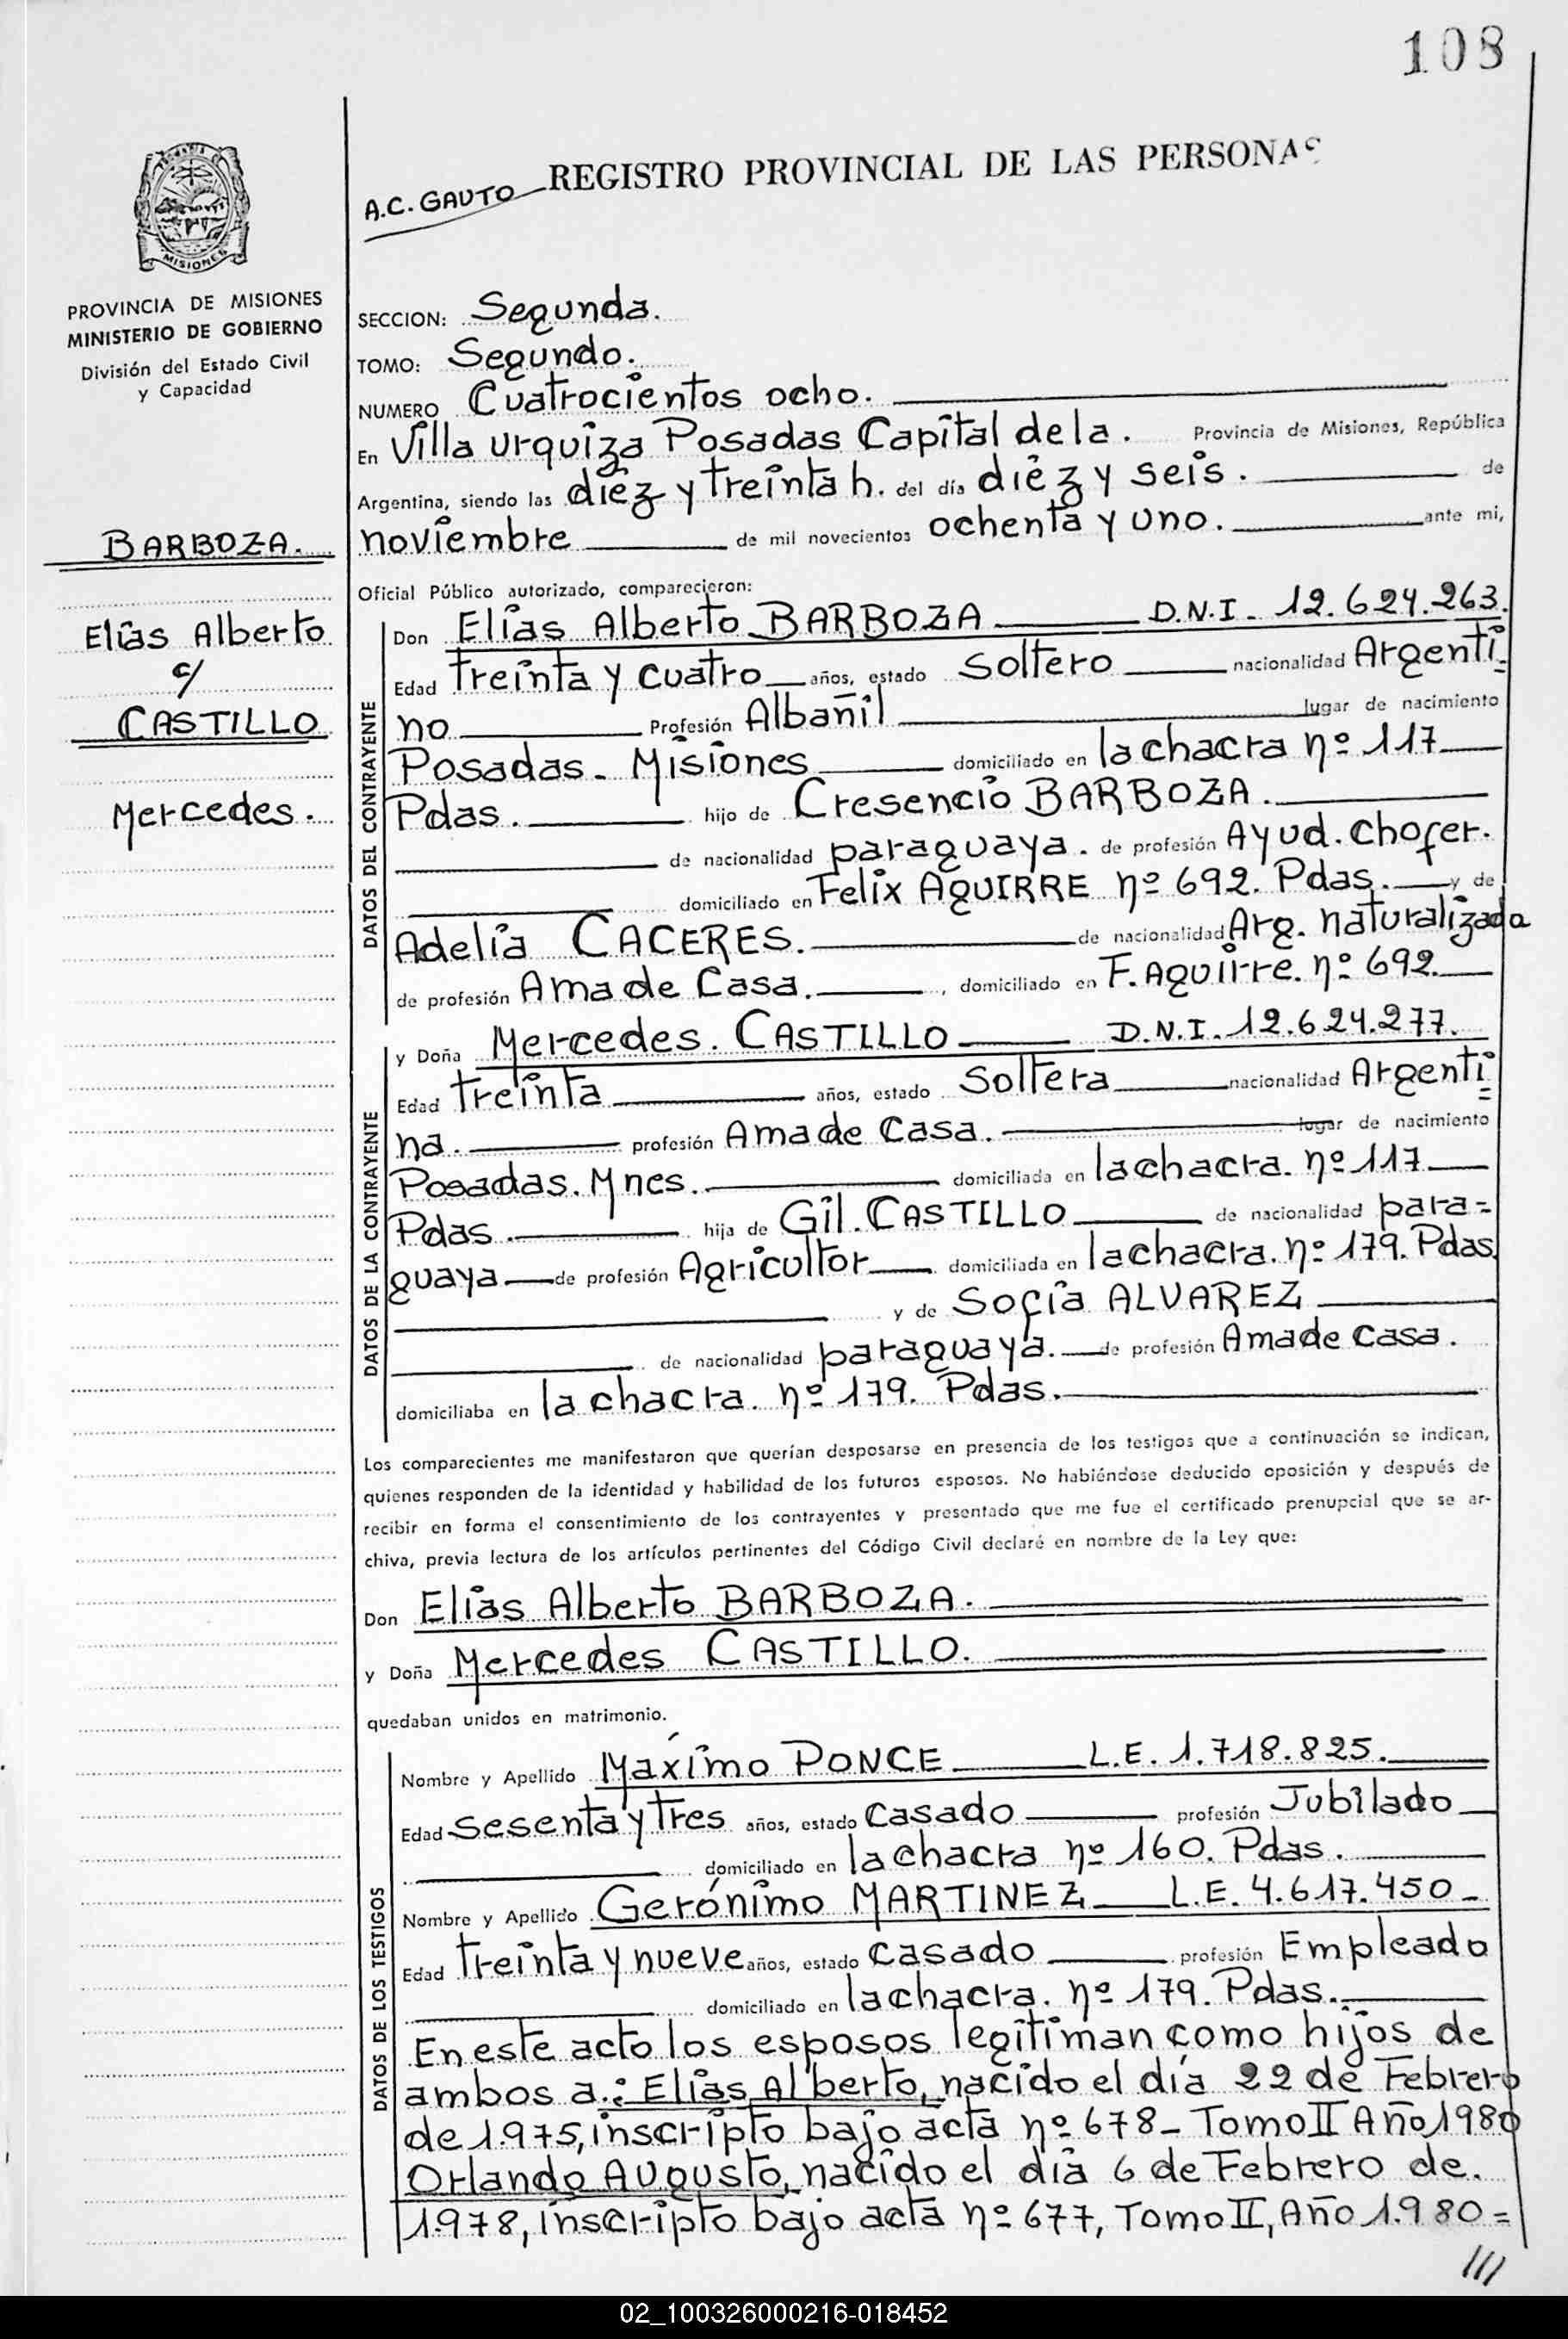 108
A.C. GAUTO
REGISTRO PROVINCIAL DE LAS PERSONAS
MISIONES
PROVINCIA DE MISIONES
MINISTERIO DE GOBIERNO
División del Estado Civil
y Capacidad
BARBOZA.
Elías Alberto
c/
CASTILLO
Mercedes.
SECCION: Segunda.
TOMO: Segundo.
NUMERO Cuatrocientos ocho.
En Villa Urquiza Posadas Capital de la. Provincia de Misiones, República
Argentina, siendo las diéz y treinta h. del día diéz y seis. de
noviembre de mil novecientos ochenta y uno. ante mi,
Oficial Público autorizado, comparecieron:
DATOS DEL CONTRAYENTE
Don Elías Alberto BARBOZA D.N.I. 12.624.263.
Edad treinta y cuatro años, estado Soltero nacionalidad Argenti-
no Profesión Albañil lugar de nacimiento
Posadas. Misiones domiciliado en la chacra nº 117
Pdas. hijo de Cresencio BARBOZA.
de nacionalidad paraguaya. de profesión Ayud. Chofer.
domiciliado en Felix AGUIRRE nº 692. Pdas. y de
Adelia CACERES. de nacionalidad Arg. naturalizada
de profesión Ama de Casa. , domiciliado en F. Aguirre. nº 692.
DATOS DE LA CONTRAYENTE
y Doña Mercedes. CASTILLO D.N.I. 12.624.277.
Edad treinta años, estado Soltera nacionalidad Argenti=
na. profesión Ama de Casa. lugar de nacimiento
Posadas. Mnes. domiciliada en la chacra. nº 117
Pdas. hija de Gil. CASTILLO de nacionalidad para=
guaya de profesión Agricultor domiciliada en la chacra. nº 179. Pdas.
y de Sofía ALVAREZ
de nacionalidad paraguaya. de profesión Ama de Casa.
domiciliaba en la chacra. nº 179. Pdas.
Los comparecientes me manifestaron que querían desposarse en presencia de los testigos que a continuación se indican,
quienes responden de la identidad y habilidad de los futuros esposos. No habiéndose deducido oposición y después de
recibir en forma el consentimiento de los contrayentes y presentado que me fue el certificado prenupcial que se ar-
chiva, previa lectura de los artículos pertinentes del Código Civil declaré en nombre de la Ley que:
Don Elías Alberto BARBOZA.
y Doña Mercedes CASTILLO.
quedaban unidos en matrimonio.
DATOS DE LOS TESTIGOS
Nombre y Apellido Máximo PONCE L.E. 1.718.825.
Edad Sesenta y tres años, estado Casado profesión Jubilado
domiciliado en la chacra nº 160. Pdas.
Nombre y Apellido Gerónimo MARTINEZ L.E. 4.617.450-
Edad treinta y nueve años, estado Casado profesión Empleado
domiciliado en la chacra. nº 179. Pdas.
En este acto los esposos legitiman como hijos de
ambos a.: Elías Alberto, nacido el día 22 de Febrero
de 1.975, inscripto bajo acta nº 678- Tomo II Año 1980
Orlando Augusto, nacido el día 6 de Febrero de.
1.978, inscripto bajo acta nº 677, Tomo II, Año 1.980=
///
02_100326000216-018452